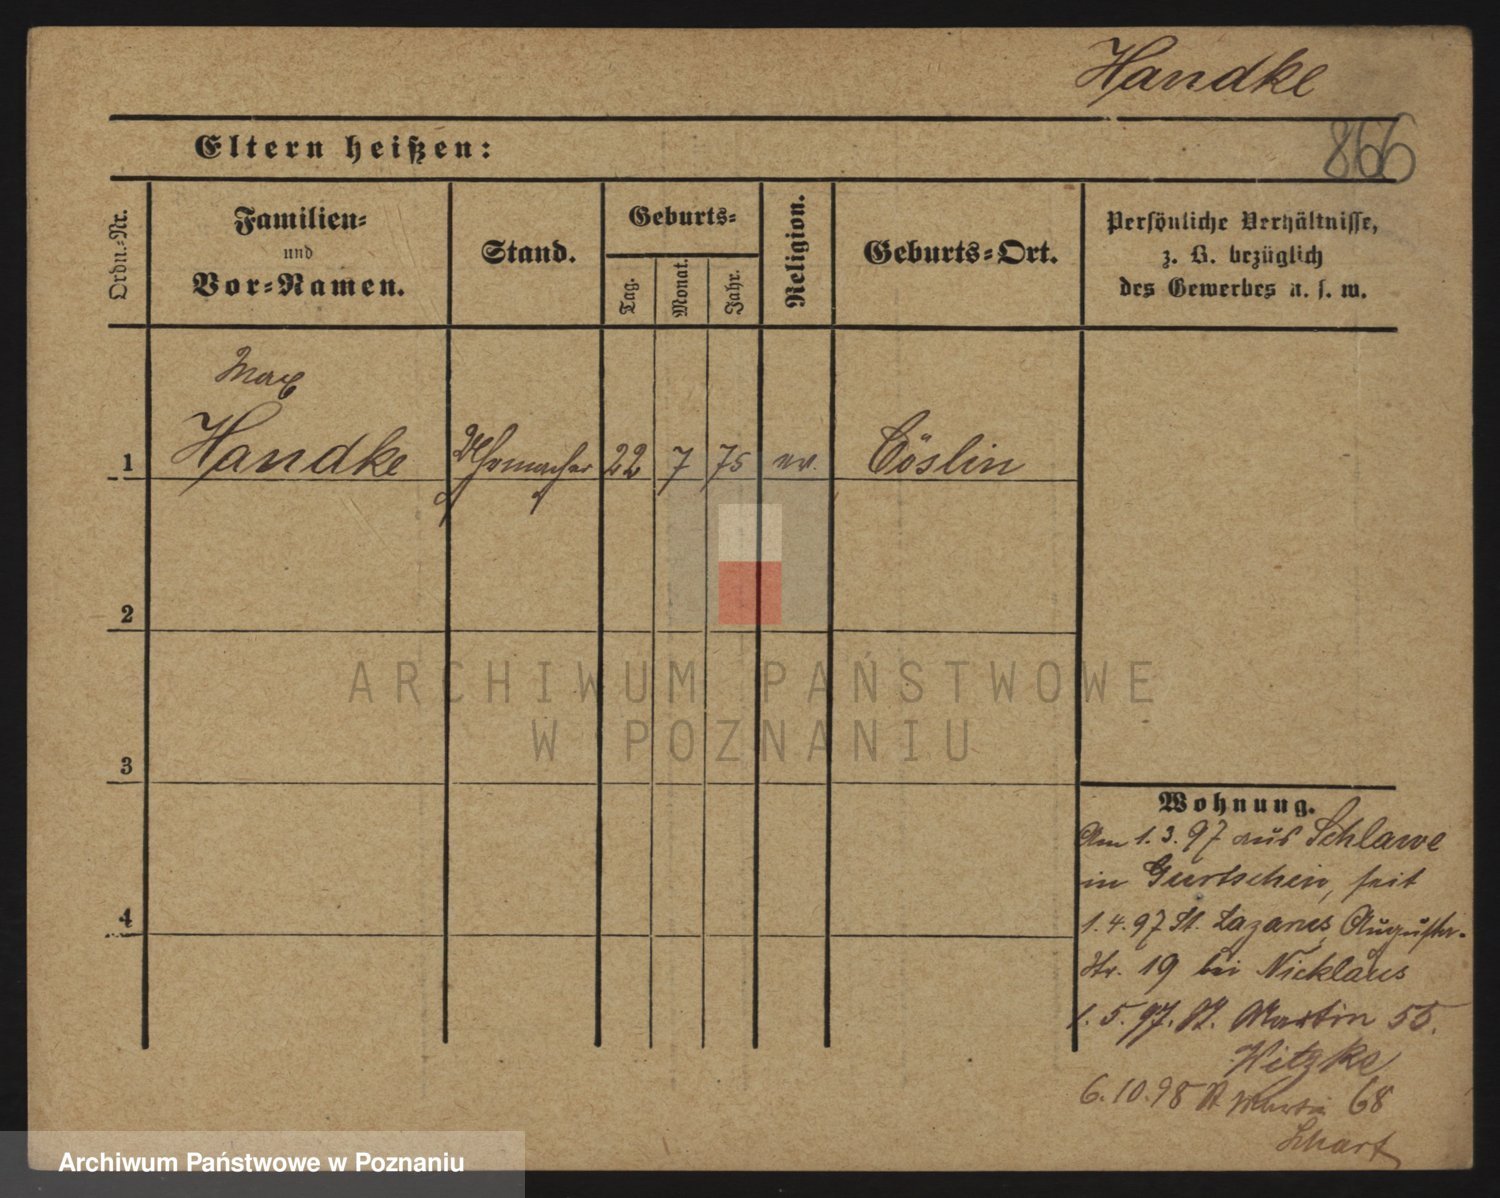 Handke
866
Eltern heißen:
Ordn.-Nr.
Familien-
und
Vor-Namen.
Stand.
Geburts-
Tag.
Monat.
Jahr.
Religion.
Geburts-Ort.
Persönliche Verhältnisse,
z. B. bezüglich
des Gewerbes u. s. w.
Max
1 Handke Uhrmacher 22 7 75 ev. Cöslin
2
3
4
ARCHIWUM PAŃSTWOWE
W POZNANIU
Wohnung.
Am 1.3.97 aus Schlawe
in Gurtschin, seit
1.4.97 St. Lazarus, Augusta-
Str. 19 bei Nicklaus
1.5.97. St. Martin 55.
Witzke
6.10.98 St Martin 68
Archiwum Państwowe w Poznaniu